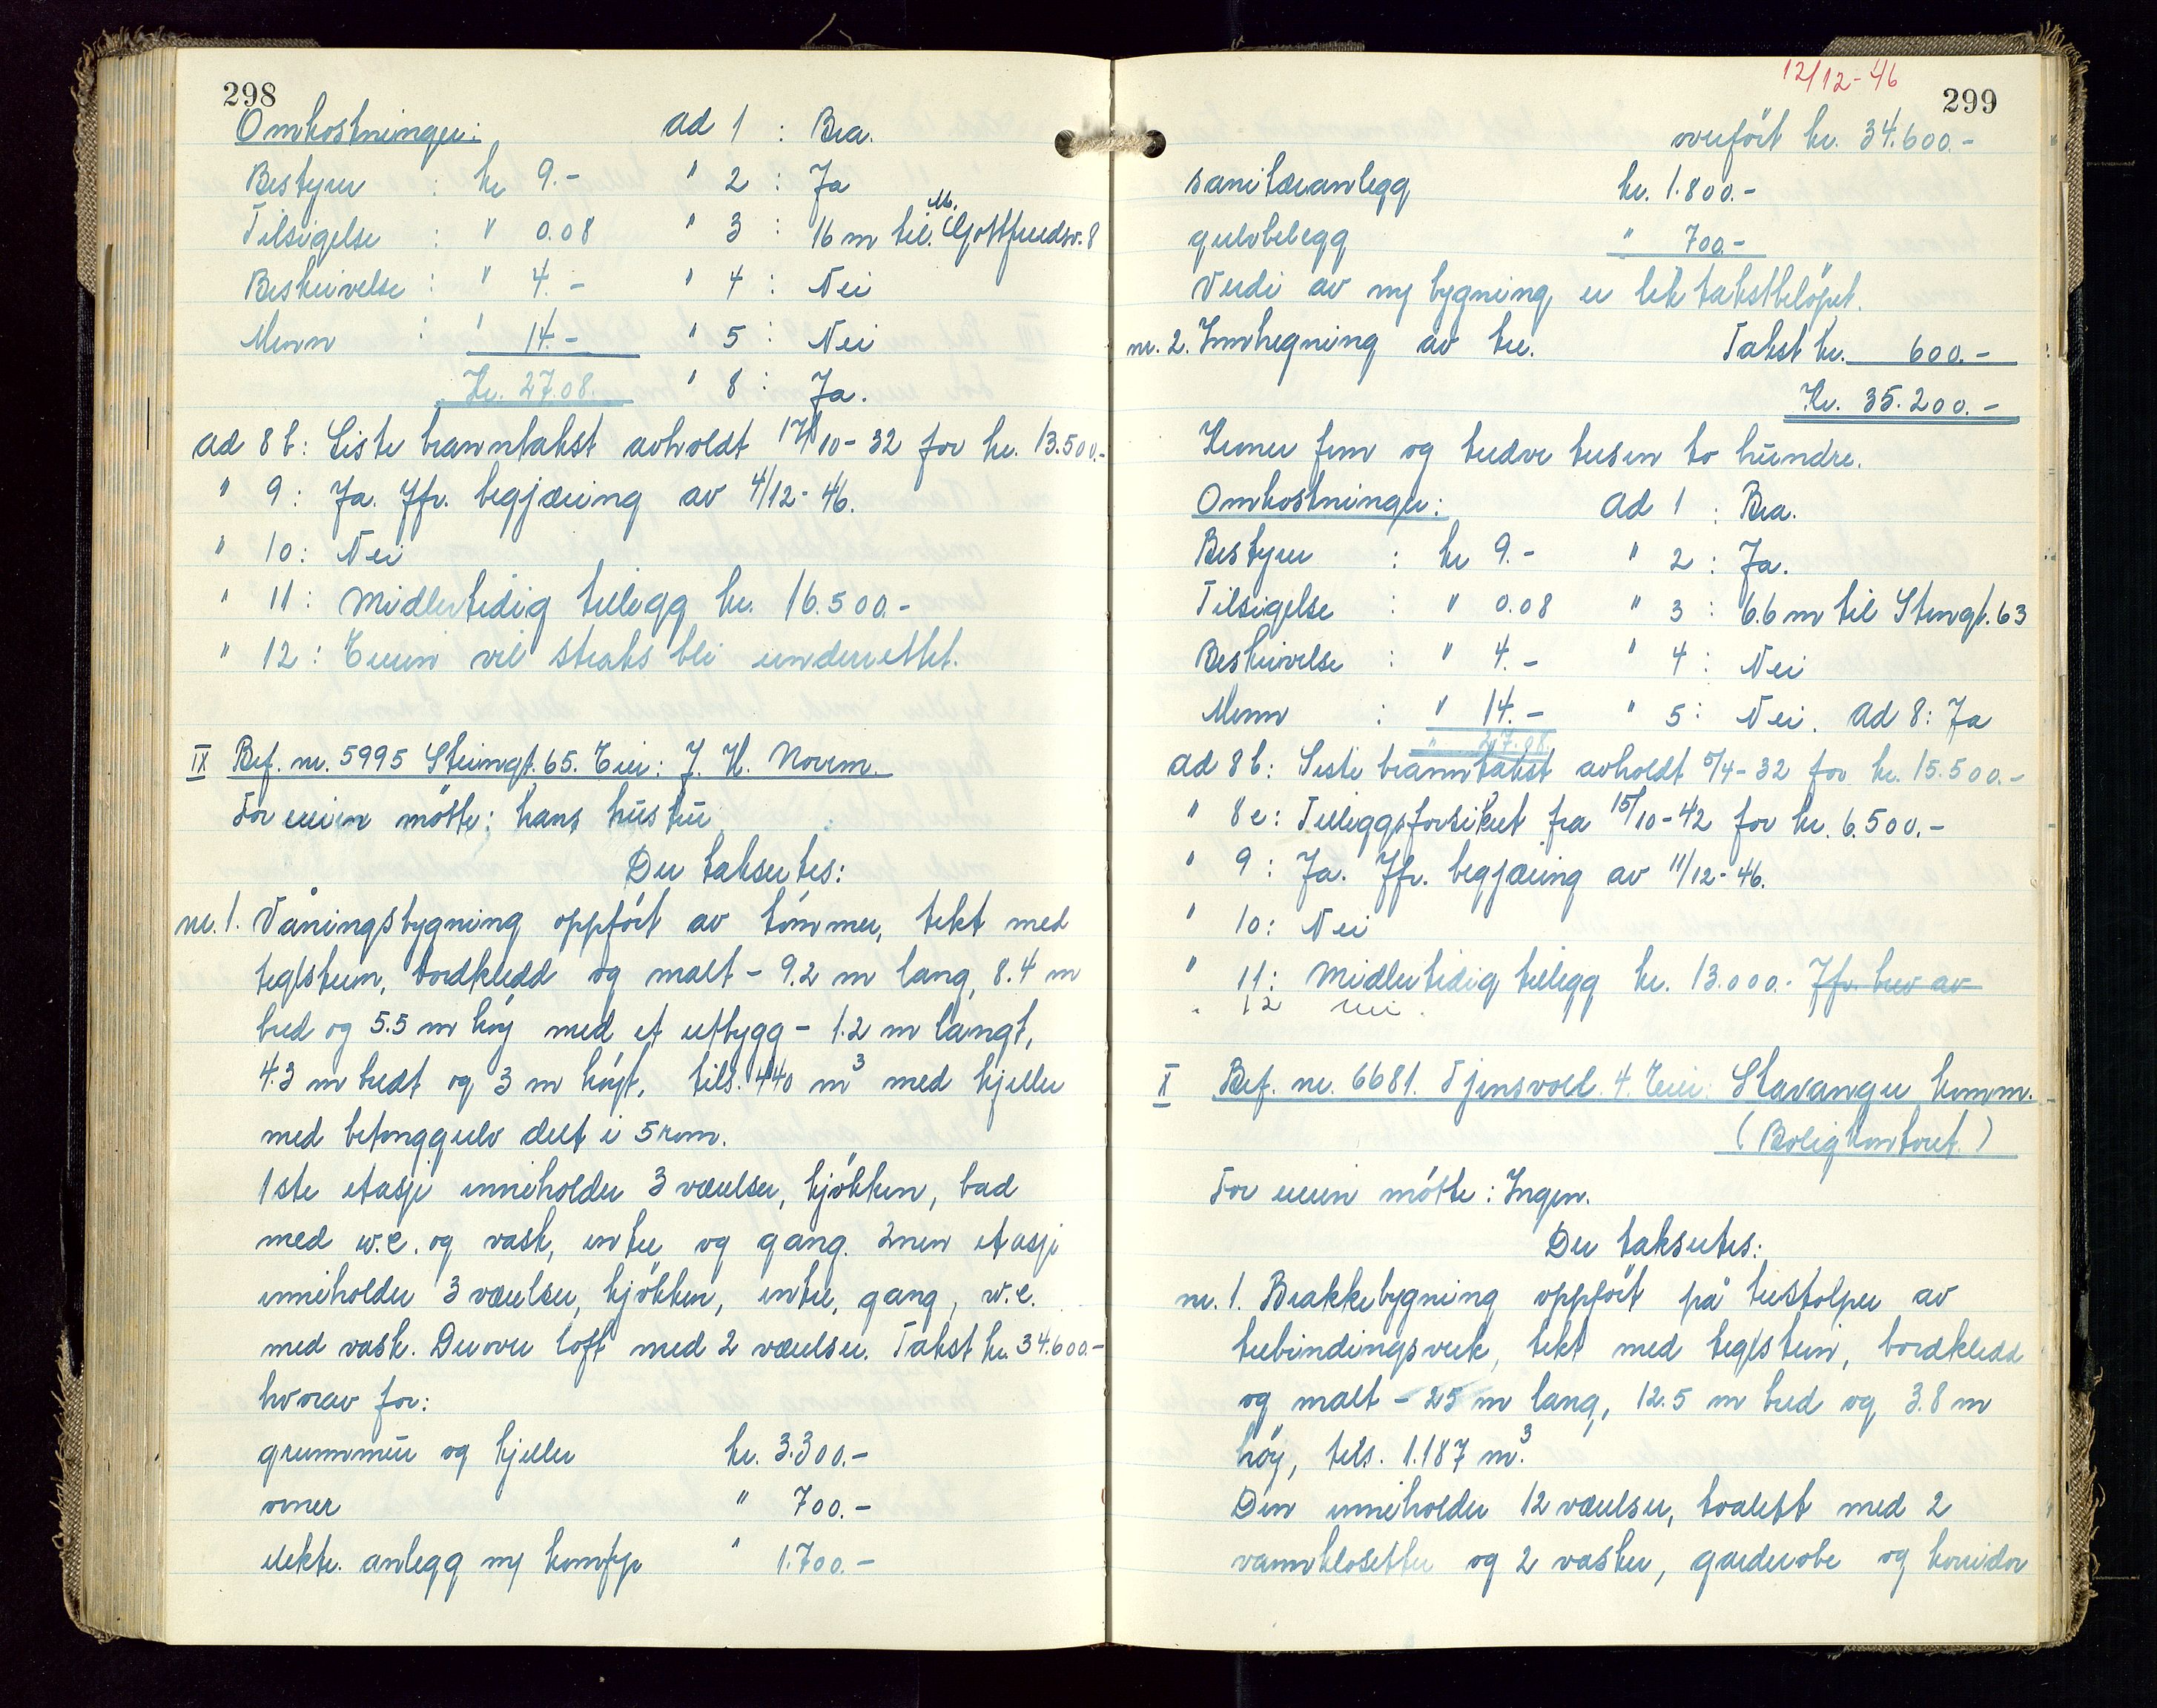 298
Omkostninger:
ad 1 : Bra.
Bestyrer : kr 9.-
" 2 : Ja
Tilsigelse : " 0.08
" 3 : 16 m til M. Gottfriedsv. 8
Beskrivelse : " 4.-
" 4 : Nei
Menn : " 14.-
" 5 : Nei
Kr. 27.08.
" 8 : Ja.
ad 8 b: Siste branntakst avholdt 17/10-32 for kr. 13.500.-
" 9 : Ja. Jfr. begjæring av 4/12-46.
" 10: Nei
" 11: Midlertidig tillegg kr. 16.500.-
" 12: Eieren vil straks bli underrettet.
IX Bef. nr. 5995 Steingt. 65. Eier: J. H.
For eieren møtte: hans hustru
Der takseres:
nr. 1. Våningsbygning oppført av tømmer, tekt med
teglstein, bordkledd og malt - 9.2 m lang, 8.4 m
bred og 5.5 m høy med et utbygg - 1.2 m langt,
4.3 m bredt og 3 m høyt, tils. 440 m³ med kjeller
med betonggulv delt i 5 rom.
1ste etasje inneholder 3 værelser, kjøkken, bad
med w.c. og vask, entre og gang. 2nen etasje
inneholder 3 værelser, kjøkken, entre, gang, w.c.
med vask. Derover loft med 2 værelser. Takst kr. 34.600.-
hvorav for:
grunnmur og kjeller kr. 3.300.-
ovner " 700.-
elektr. anlegg m/ komfyr " 1.700.-
12/12-46
299
overført kr. 34.600.-
sanitæranlegg kr. 1.800.-
gulvbelegg " 700.-
Verdi av ny bygning er lik takstbeløpet.
nr. 2. Innhegning av tre. Takst kr. 600.-
Kr. 35.200.-
Kroner fem og tredve tusen to hundre.
Omkostninger:
ad 1 : Bra.
Bestyrer : kr 9.-
" 2 : Ja.
Tilsigelse : " 0.08
" 3 : 6.6 m til Steingt. 63
Beskrivelse : " 4.-
" 4 : Nei
Menn : " 14.-
" 5 : Nei. ad 8: Ja
" 27.08.
ad 8 b: Siste branntakst avholdt 5/4-32 for kr. 15.500.-
" 8 e: Tilleggsforsikret fra 15/10-42 for kr. 6.500.-
" 9 : Ja. Jfr. begjæring av 11/12-46.
" 10: Nei
" 11: Midlertidig tillegg kr. 13.000.- Jfr. brev av
" 12 nei.
X Bef. nr. 6681. Tjensvoll 4. Eier: Stavanger komm.
(Boligkontoret.)
For eieren møtte: Ingen.
Der takseres:
nr. 1. Brakkebygning oppført på trestolper av
trebindingsverk, tekt med teglstein, bordkledd
og malt - 25 m lang, 12.5 m bred og 3.8 m
høy, tils. 1.187 m³.
Den inneholder 12 værelser, toalett med 2
vannklosetter og 2 vasker, garderobe og korridor